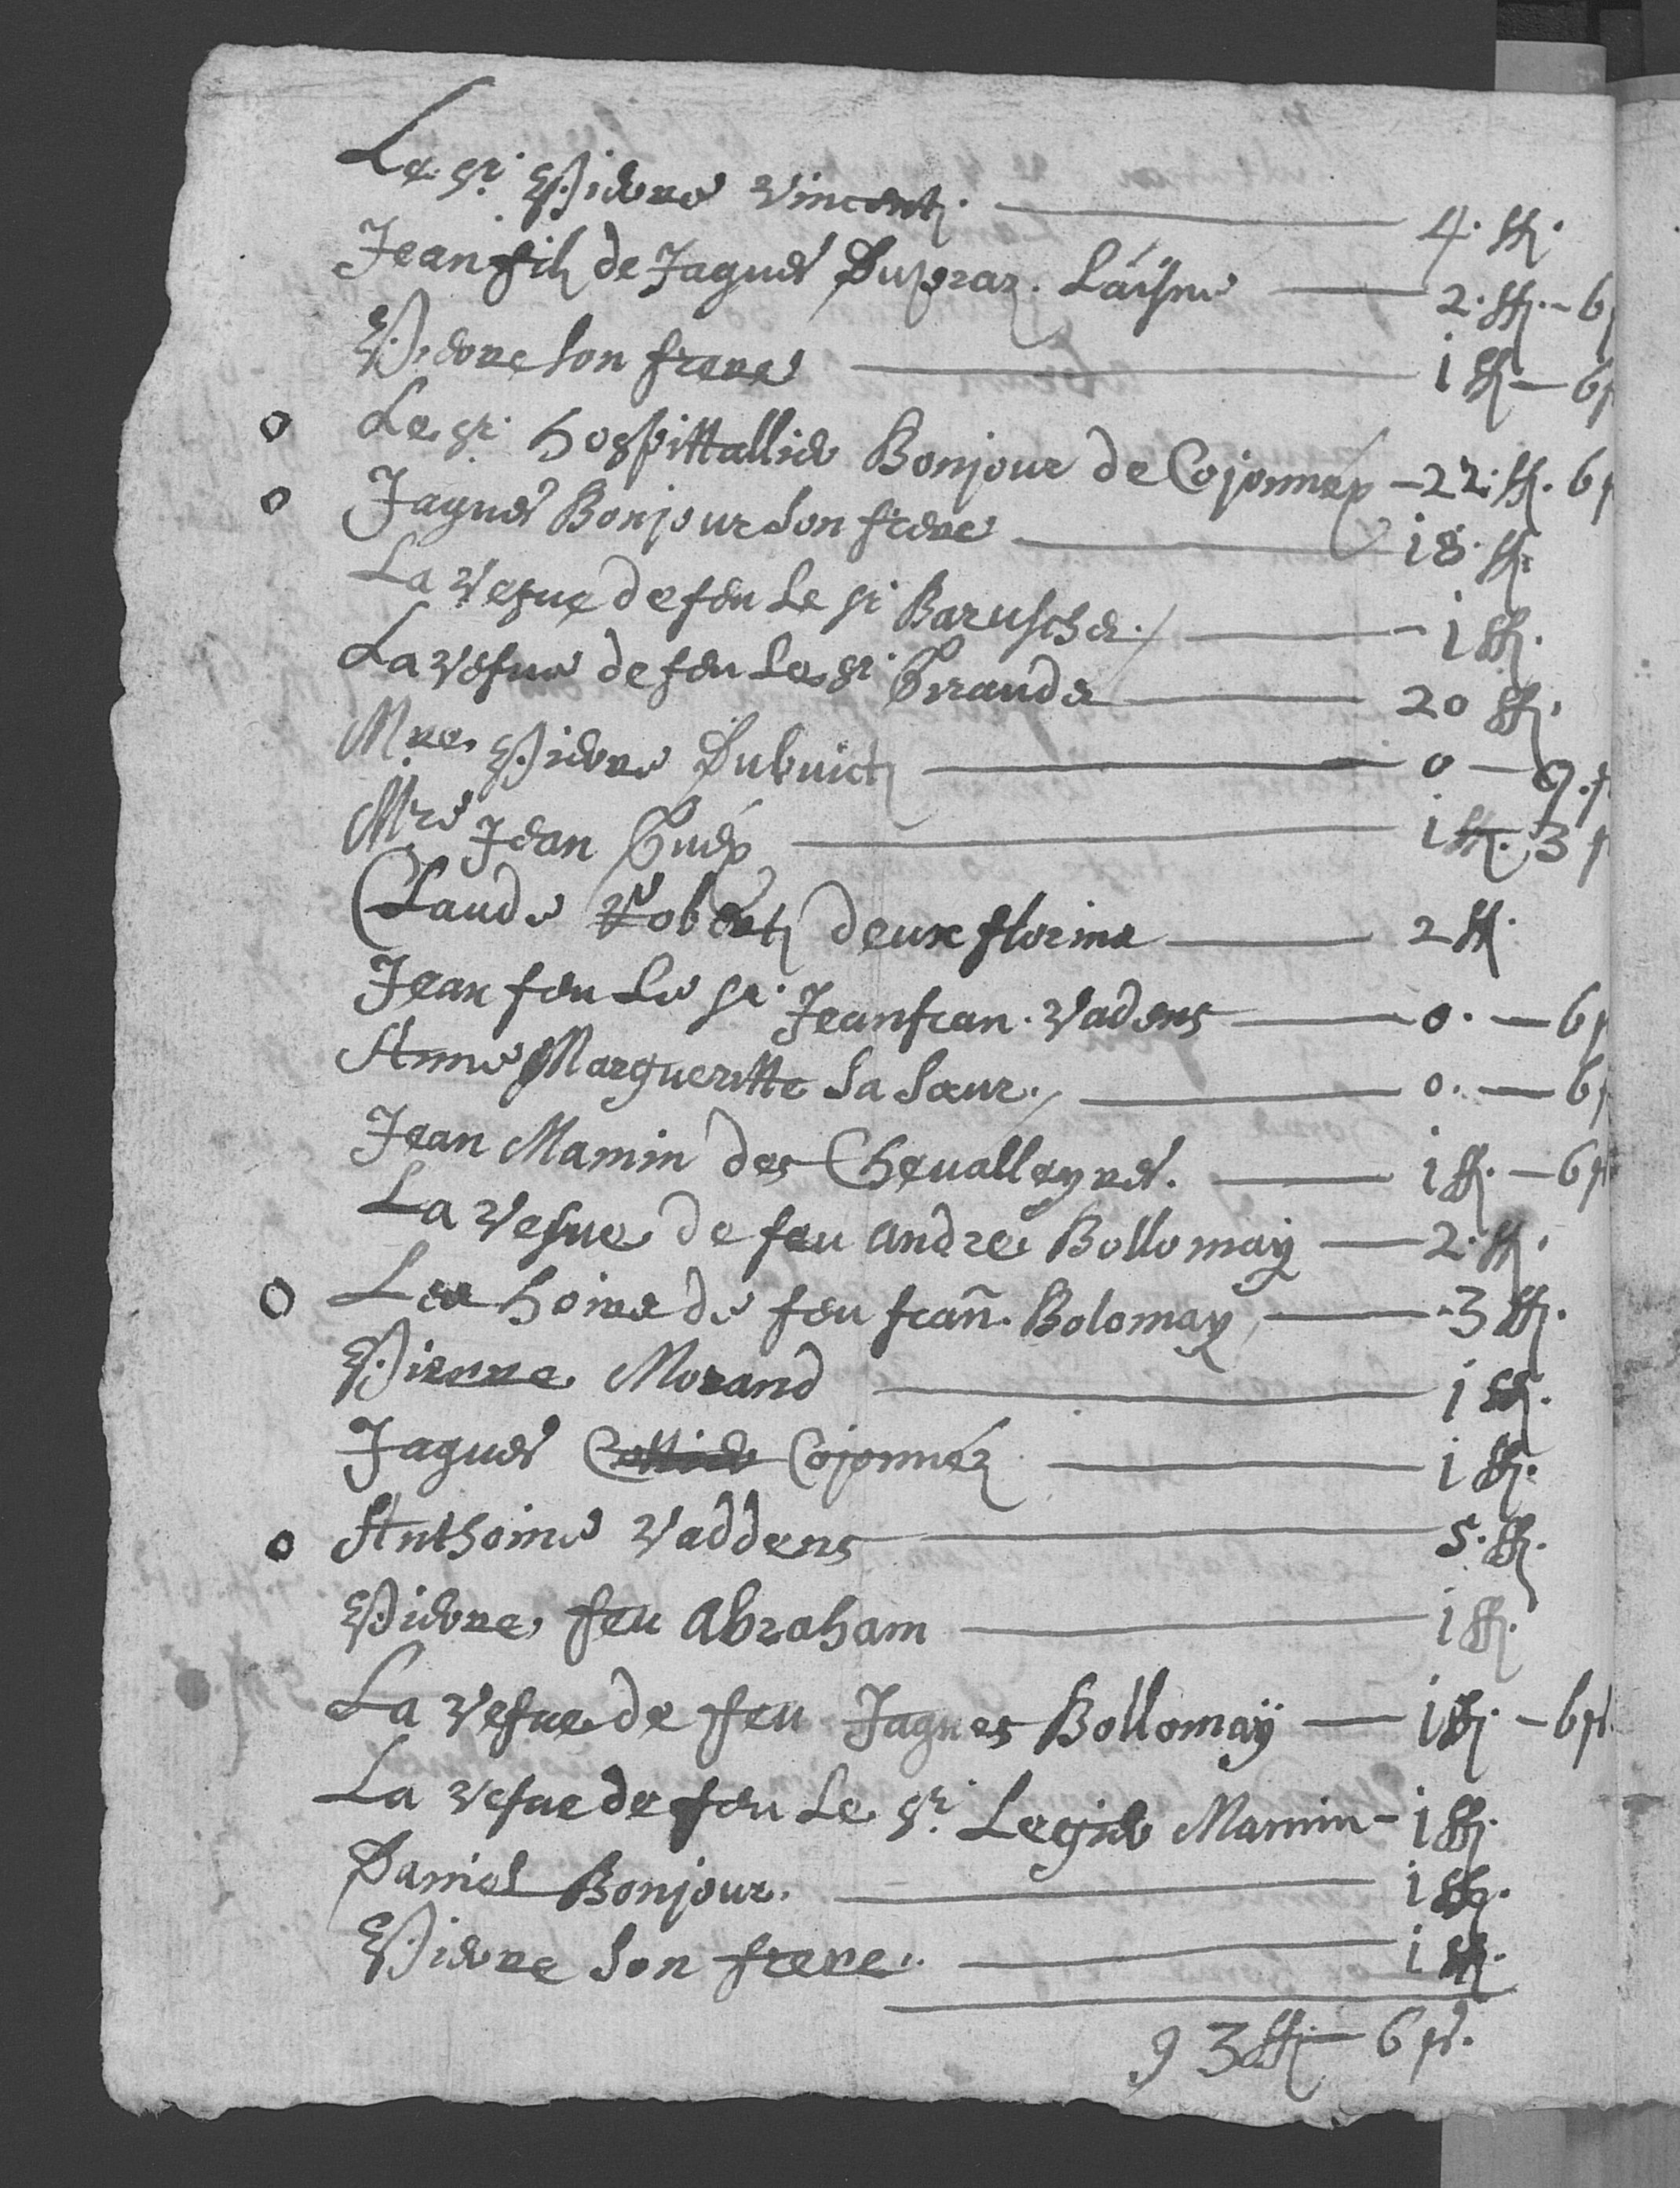 Le Sr. Pierre Vincent. — 4. ff.
Jean filz de Jaques Dupraz. L'aisne — 2. ff. — 6 s
Pierre son frere — 1 ff — 6 s
o Le Sr. hospittallier Bonjour de Cojonnex — 22. ff. 6 s
o Jaques Bonjour son frere — 18. ff.
La vefue de feu Le Sr Baruscher. — 1 ff.
La vefue de feu Le Sr. — 20 ff.
Mre. Pierre — 0 — 9. s
Mre Jean Guex — 1 ff. 3 s
Claude Robert deux florins — 2 ff.
Jean feu Le Sr. Jean fran. Vadens — 0. — 6 s
Anne Margueritte sa sœur. — 0. — 6 s
Jean Mamin des Cheualleyres. — 1 ff. — 6 s
La vefue de feu André Bollomaÿ — 2. ff.
o Les hoirs de feu frañ. Bolomay — 3 ff.
Pierre Morand — 1 ff.
Jaques Cojonnéz — 1 ff.
o Anthoine Vaddens — 5. ff.
Pierre feu Abraham — 1 ff.
La vefue de feu Jaques Bollomaÿ — 1 ff. — 6 s.
La vefue de feu Le Sr. Legier Mamin — 1 ff.
Daniel Bonjour. — 1 ff.
Pierre son frere. — 1 ff.
93 ff — 6 s.